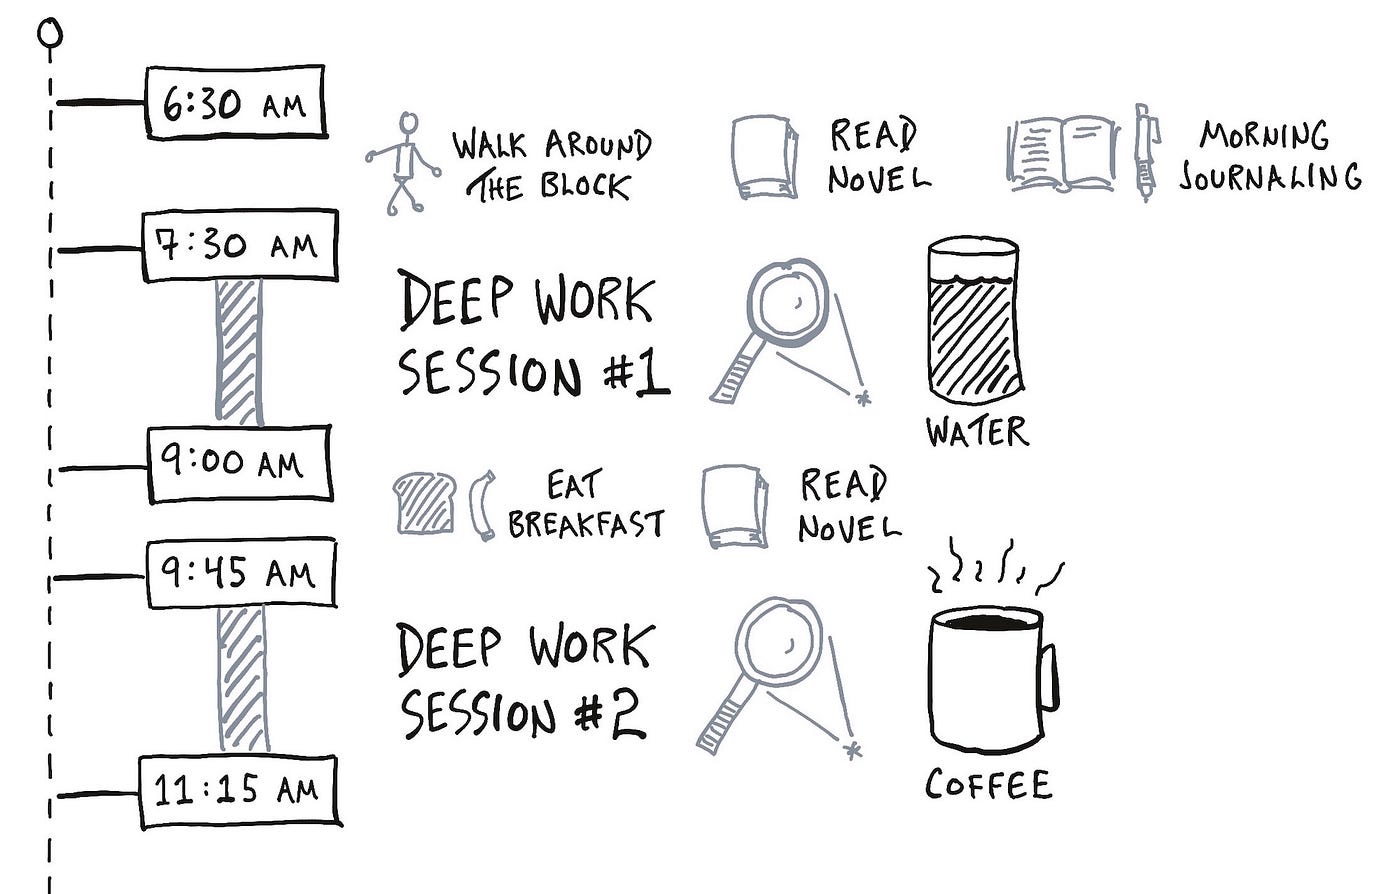 6:30 AM
WALK AROUND
THE BLOCK
READ
NOVEL
MORNING
JOURNALING
7:30 AM
DEEP WORK
SESSION #1
WATER
9:00 AM
EAT
BREAKFAST
READ
NOVEL
9:45 AM
DEEP WORK
SESSION #2
COFFEE
11:15 AM